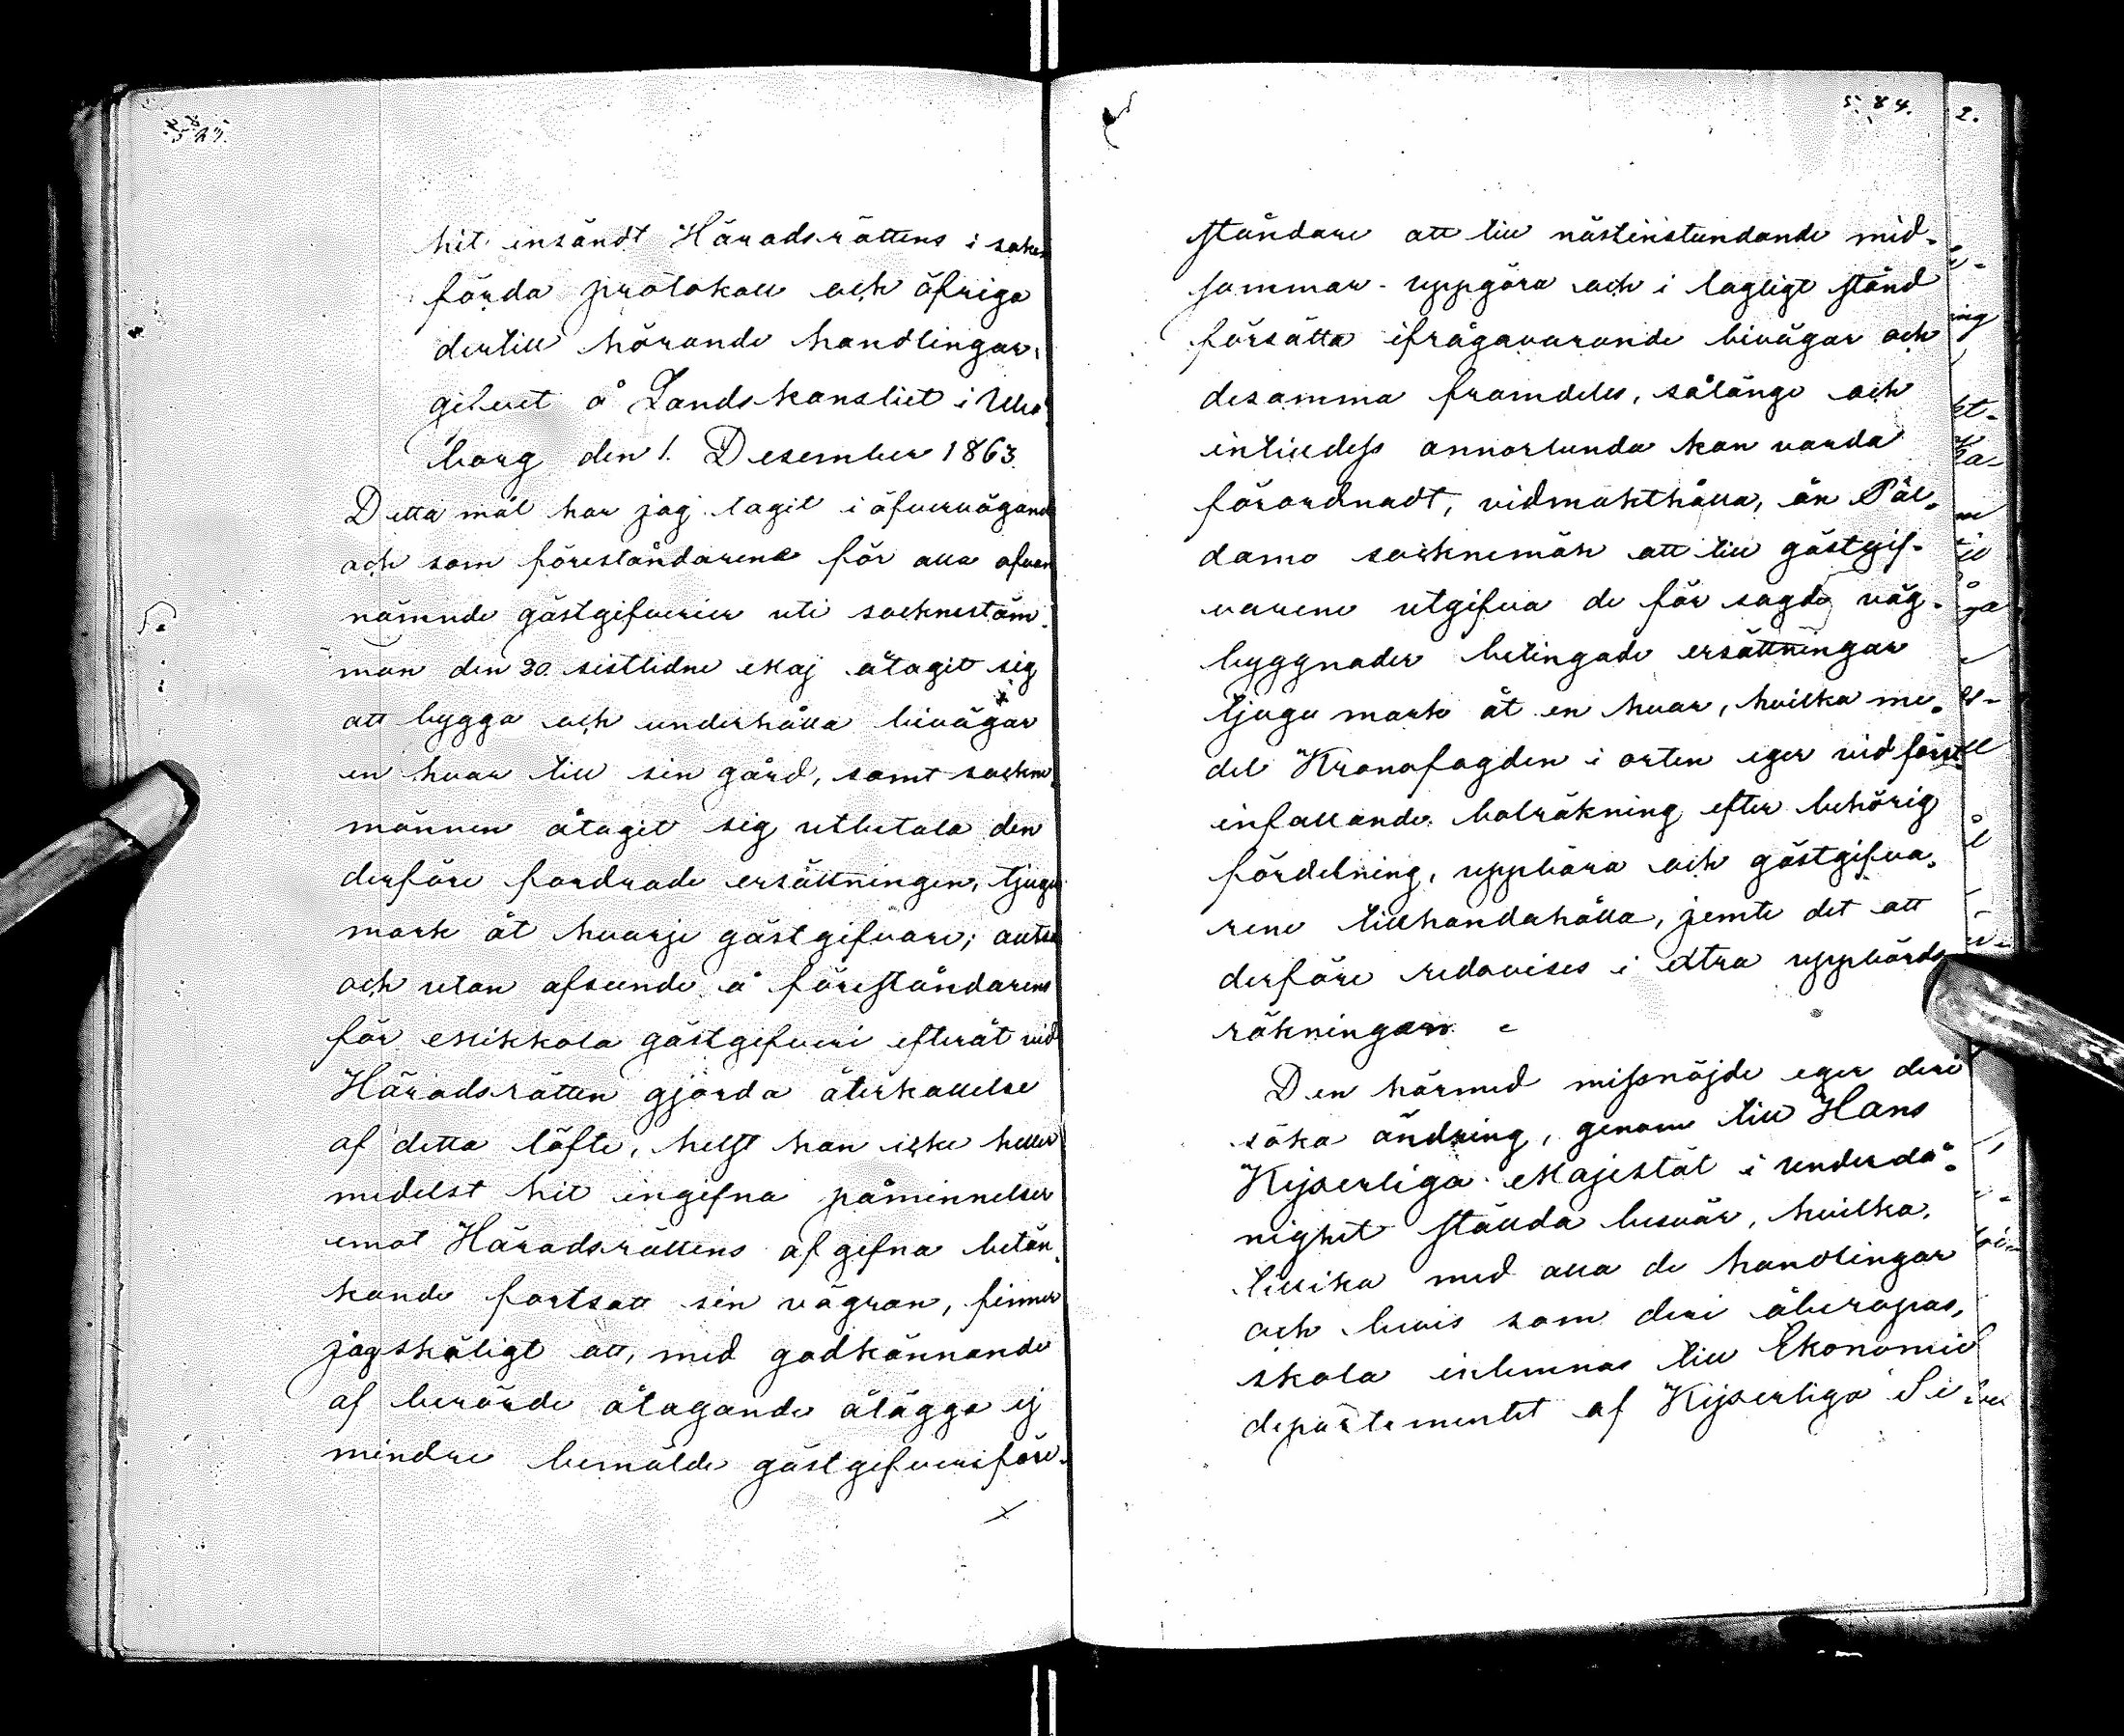 hit insändt Häradsrättens i saken
förda protokoll och öfriga
dertill hörande handlingar;
gifvet å Landskansliet i Uleå-
borg den 1. December 1863.
Detta mål har jag tagit i öfvervägande
och som föreståndarene för alla ofvan
nämnde gästgifverier uti sockneståm-
man den 30. sistlidne Maj åtagit sig
att bygga och underhålla bivägar
en hvar till sin gård, samt sockne-
männen åtagit sig utbetala den
derföre fordrade ersättningen, tjugu
mark åt hvarje gästgifvare; alltså
och utan afseende å föreståndarens
för Mikkola gästgifveri efteråt vid
Häradsrätten gjorda återkallelse
af detta löfte, helst han icke heller
medelst hit ingifna påminnelser
emot Häradsrättens afgifna betän-
kande fortsatt sin vägran, finner
jag skäligt att, med godkännande
af berörde åtagande ålägga ej
mindre bemälde gästgifveriföre-
584.
ståndare att till nästinstundande mid-
sommar uppgöra och i lagligt stånd
försätta ifrågavarande bivägar och
desamma framdeles, sålänge och
intilldess annorlunda kan varda
förordnadt, vidmakthålla, än Pål-
damo socknemän att till gästgif-
varene utgifva de för sagda väg-
byggnader betingade ersättningar
tjugu mark åt en hvar, hvilka me-
del Kronofogden i orten eger vid först
infallande balräkning efter behörig
fördelning, uppbära och gästgifva-
rene tillhandahålla, jemte det att
derföre redovises i extra uppbörds
räkningen.
Den härmed missnöjde eger deri
söka ändring, genom till Hans
Kejserliga Majestät i underdå-
nighet ställda besvär, hvilka,
tillika med alla de handlingar
och bevis som deri åberopas,
skola inlemnas till Ekonomie
departementet af Kejserliga Se